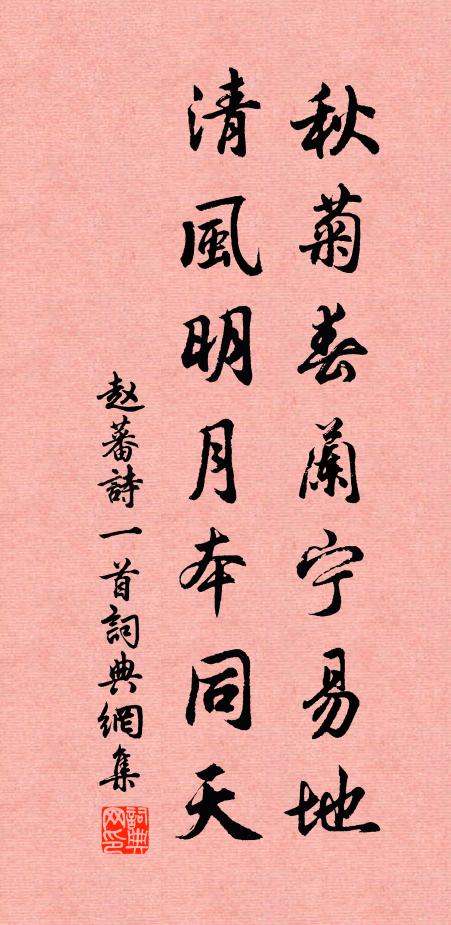 秋菊春蘭宁易地
清風明月本同天
赵蕃詩一首詞典網集
詞典網印